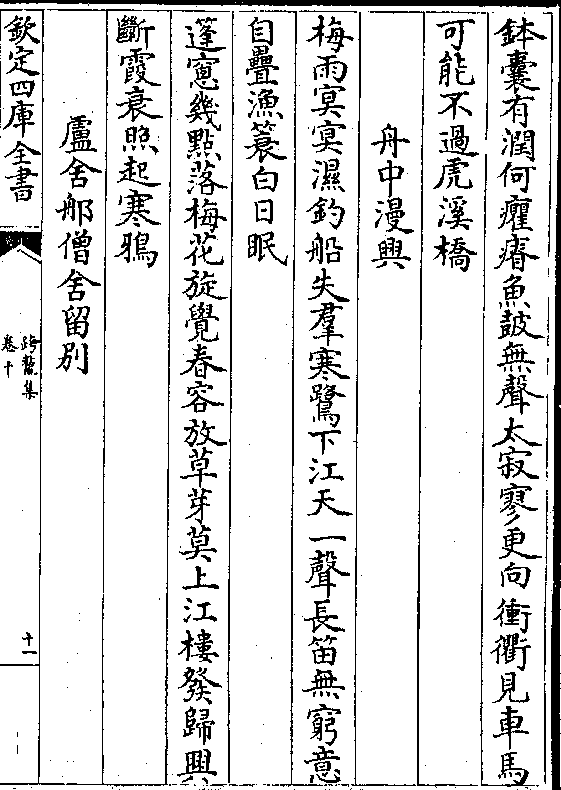 鉢囊有潤何癯瘠魚鼓無聲太寂寥更向衝衢見車馬
可能不過虎溪橋
舟中漫興
梅雨冥冥濕釣船失羣寒鷺下江天一聲長笛無窮意
自疊漁簑白日眠
蓬窻幾點落梅花旋覺春容放草芽莫上江樓發歸興
斷霞衰照起寒鴉
盧舍郍僧舍留别
欽定四庫全書
跨鼇集
卷十
十一